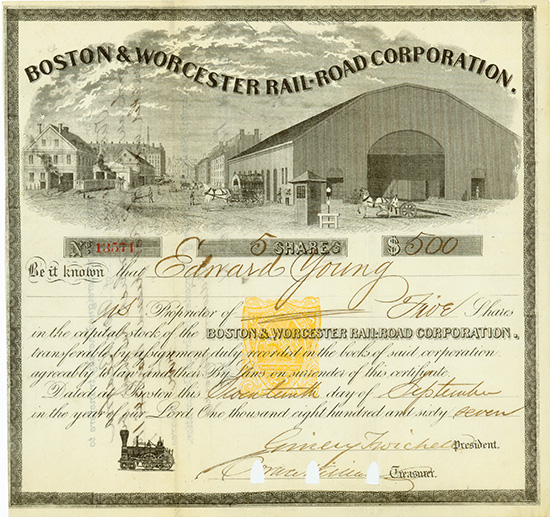 BOSTON & WORCESTER RAIL-ROAD CORPORATION.
No. 13571 5 SHARES $ 500
Be it known that Edward Young
is Proprietor of Five Shares
in the capital stock of the BOSTON & WORCESTER RAIL-ROAD CORPORATION.,
transferable by assignment duly recorded in the books of said corporation
agreeably to law and their By Laws on surrender of this certificate.
Dated at Boston this day of September
in the year of our Lord One thousand eight hundred and sixty seven
Ginery Twichell President.
Treasurer.